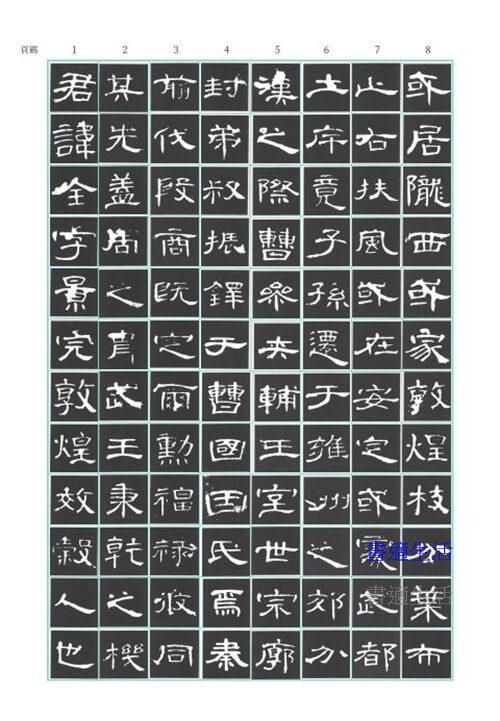 頁碼 1 2 3 4 5 6 7 8
君諱全字景完敦煌效穀人也
其先蓋周之胄武王秉乾之機
翦伐殷商既定爾勳福祿攸同
封弟叔振鐸于曹國因氏焉秦
漢之際曹參夾輔王室世宗廓
土斥竟子孫遷于雍州之郊分
止右扶風或在安定或處武都
或居隴西或家敦煌枝分葉布
書適生活
書適生活